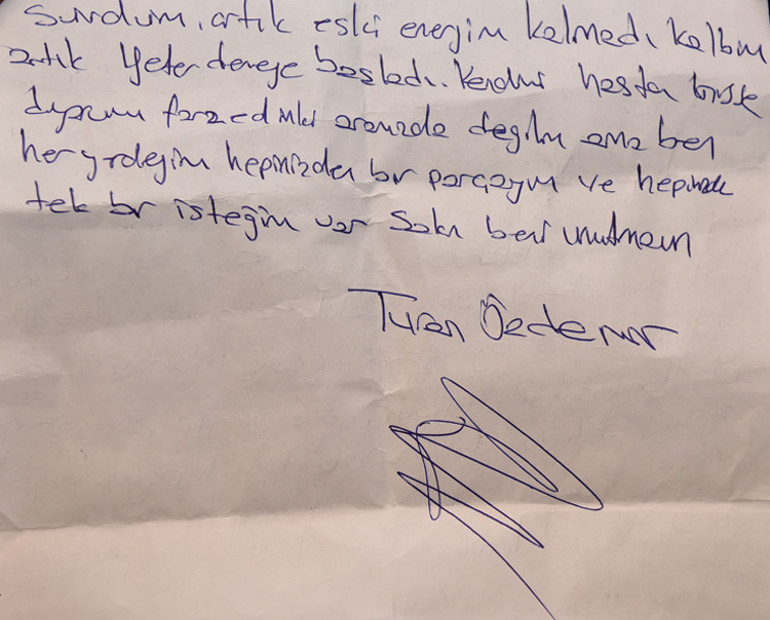 surdum. artık eski enerjim kalmadı kalbim
artık yeter demeye başladı. Kendimi hasta
farzedinki aranızda değilim ama ben
her yerdeyim hepinizden bir parçayım ve
tek bir isteğim var Sakın beni unutmayın
Turan Özdemir